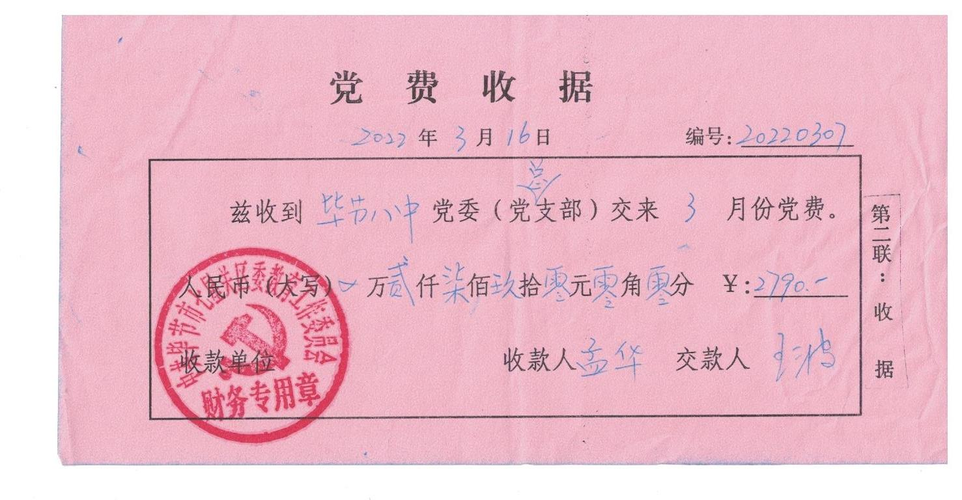 党费收据
2022年3月16日 编号:20220307
总
兹收到 毕节八中 党委(党支部)交来 3 月份党费。
人民币(大写) 万贰仟柒佰玖拾零元零角零分 ¥:2790.-
收款单位 收款人孟华 交款人 王鸿
第二联:收据
财务专用章